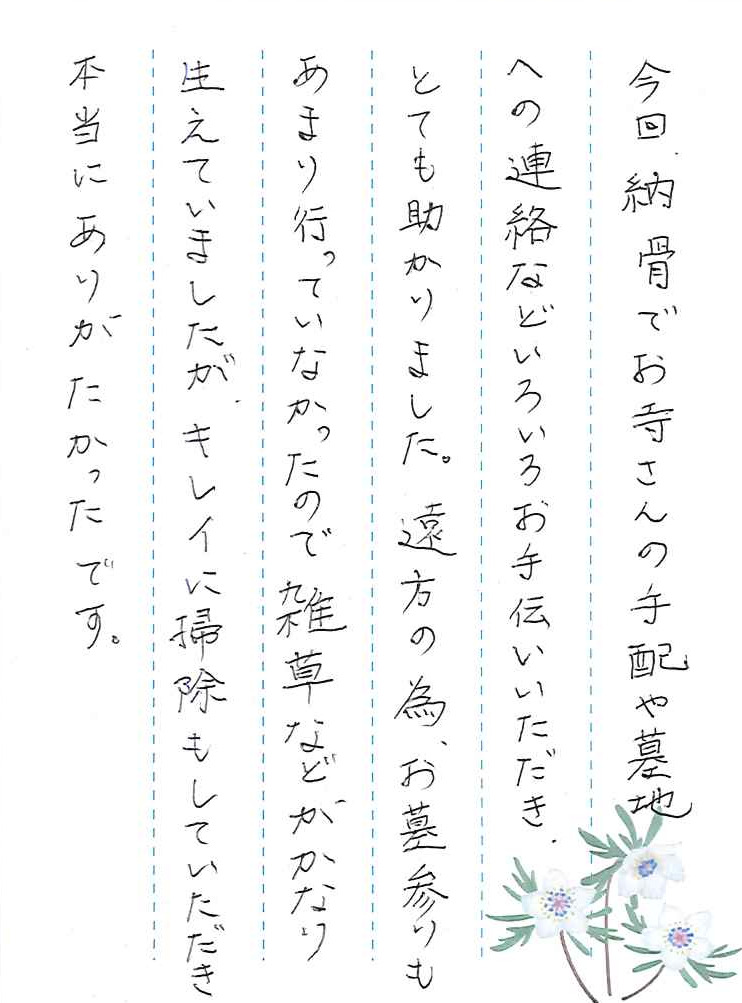 今回、納骨でお寺さんの手配や墓地
への連絡などいろいろお手伝いいただき、
とても助かりました。遠方の為、お墓参りも
あまり行っていなかったので雑草などがかなり
生えていましたが、キレイに掃除もしていただき
本当にありがたかったです。